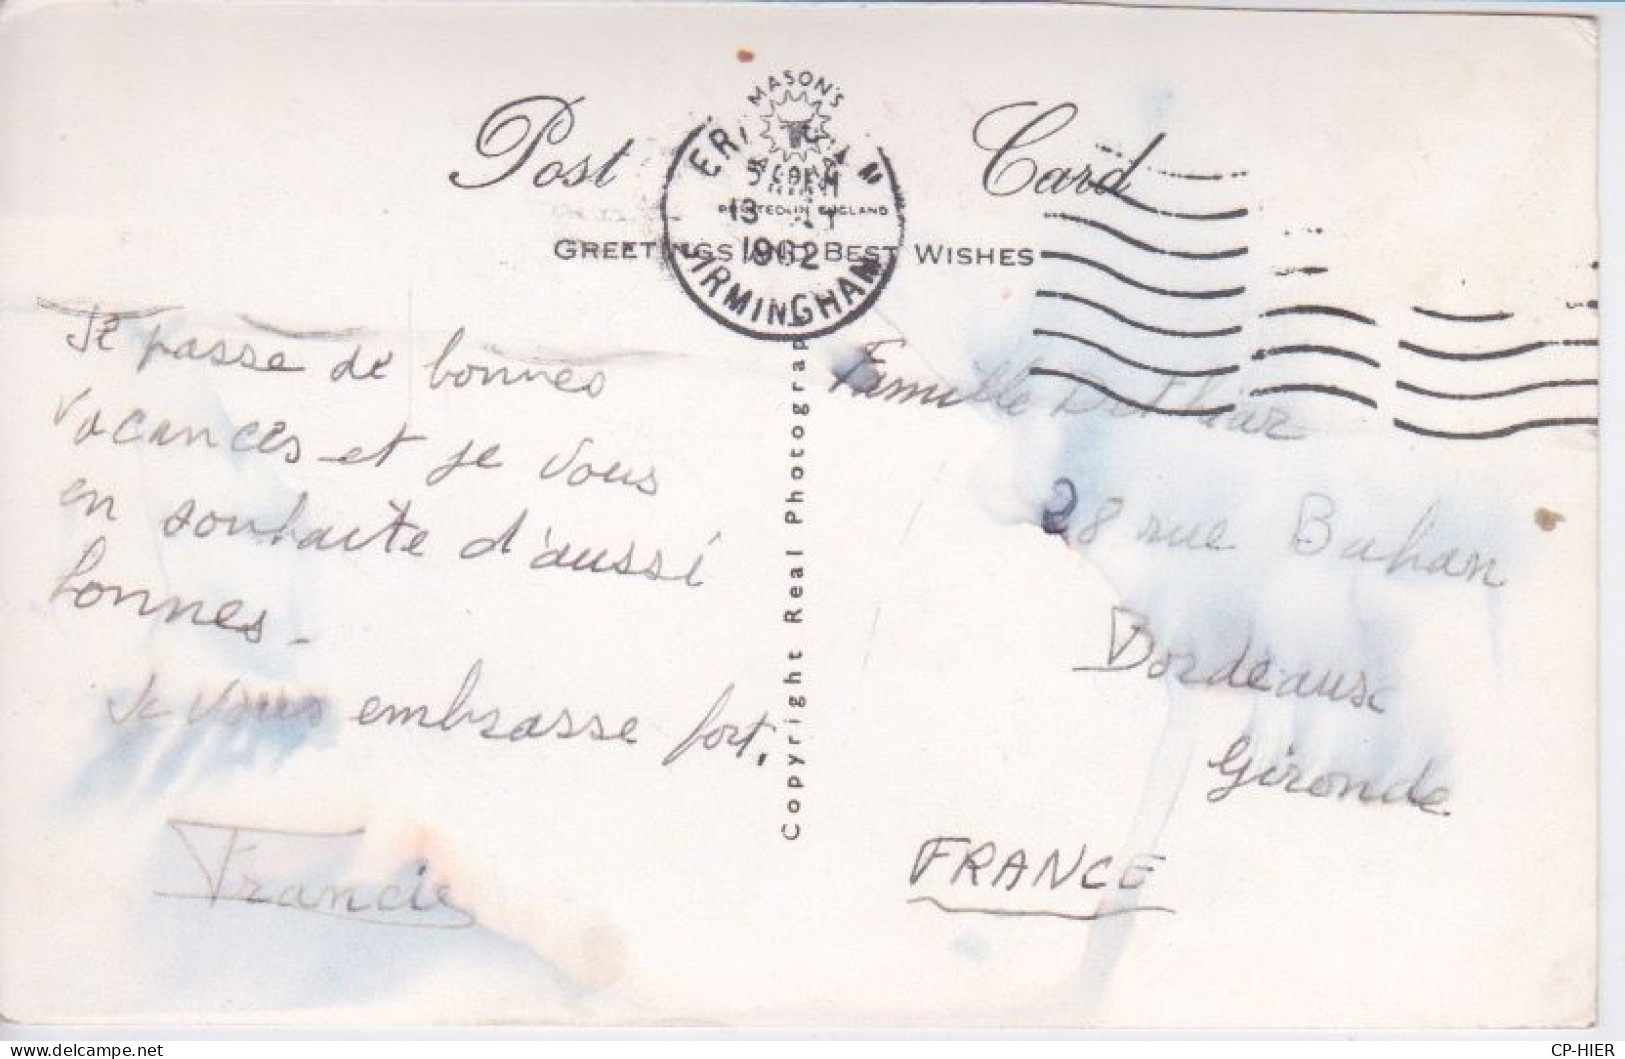 MASON'S
Post Card
PRINTED IN ENGLAND
GREETINGS AND BEST WISHES
13
1962
BIRMINGHAM
Je passe de bonnes
vacances et je vous
en souhaite d'aussi
bonnes.
Je vous embrasse fort.
Francie
Copyright Real Photograph
Famille
28 rue Buhan
Bordeaux
Gironde
FRANCE
CP-HIER